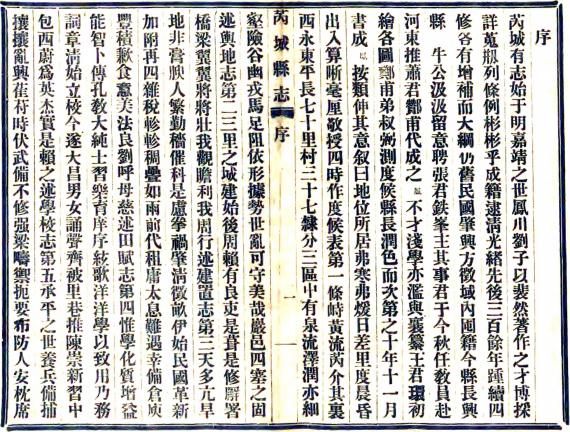 序
芮城有志始于明嘉靖之世鳳川劉子以斐然著作之才博採
詳蒐臚列條例彬彬乎成籍逮清光緒先後三百餘年踵續四
修各有增補而大綱仍舊民國肇興方徵域內圖籍今縣長興
縣　牛公汲汲留意聘張君鉄峯主其事君于今秋任教員赴
河東推蕭君鄭甫代成之　不才淺學亦濫與襄纂王君環初
繪各圖鄭甫弟叔弼測度候縣長潤色而次第之十年十一月
書成　按類伸其意叙曰地位所居弗寒弗煖日差里度晨昏
出入算晰毫厘敬授四時作度候表第一條峙黃流芮介其裏
西永東平長七十里村三十七隸分三區中有泉流澤潤亦細
芮城縣志　序　一
壑險谷幽戎馬足阻依形據勢世亂可守美哉嚴邑四塞之固
述輿地志第二三里之城建始後周賴有良吏是葺是修廨署
橋梁翼翼將將壯我觀瞻利我周行述建置志第三天多亢旱
地非膏腴人繁勤穡催科是慮拳禍肇清徵畝伊始民國革新
加附再四雜稅軫軫稠疊如雨前代租庸太息難遇幸備倉庾
豐積歉食意美法良劉呼母慈述田賦志第四惟學化質增益
能智卜傳孔教大純士習樂育庠序絃歌洋洋學以致用乃務
詞章清始立校今遂大昌男女誦聲齊被里巷推陳崇新習中
包西蔚為英杰實是賴之述學校志第五承平之世養兵備捕
攘攘亂興萑苻時伏武備不修强梁疇禦扼要布防人安枕席